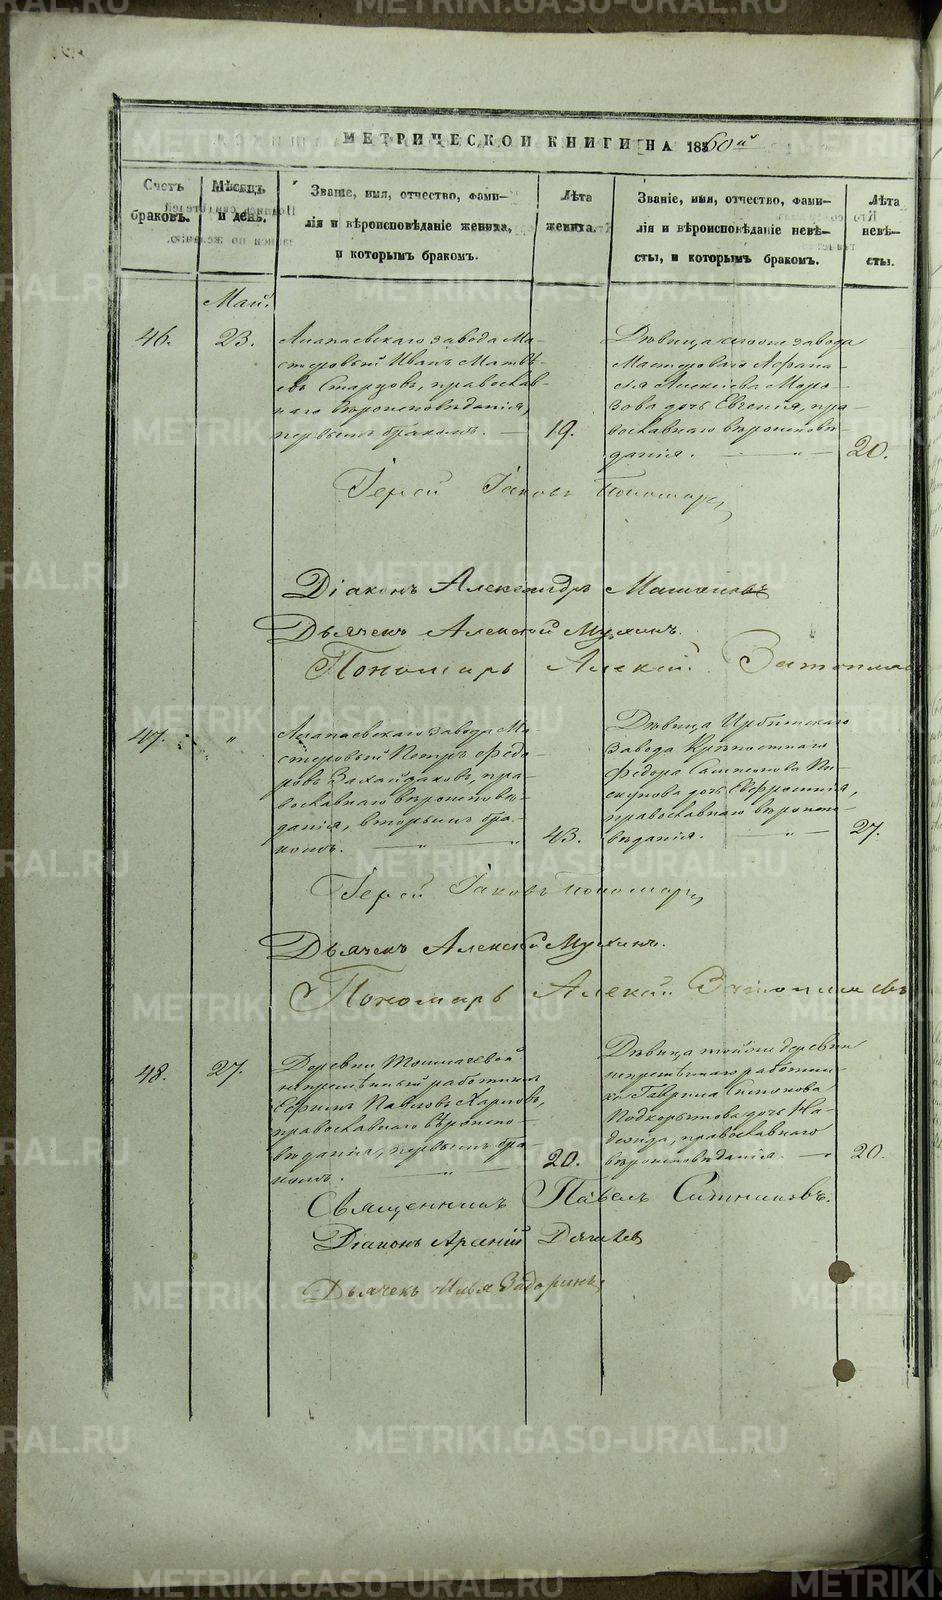 МЕТРИЧЕСКОЙ КНИГИ НА 1860й
Счетъ браковъ.
Мѣсяцъ и день.
Званіе, имя, отчество, фами-
лія и вѣроисповѣданіе жениха,
и которымъ бракомъ.
Лѣта жениха.
Званіе, имя, отчество, фами-
лія и вѣроисповѣданіе невѣ-
сты, и которымъ бракомъ.
Лѣта невѣ-
сты.
Май.
46.
23.
Алапаевскаго завода Ма-
стеровый Иванъ Матвѣ-
евъ Старцовъ, православ-
наго вѣроисповѣданія,
первымъ бракомъ.
19.
Дѣвица того же завода
Мастероваго Афана-
сія Алексѣева Моро-
зова дочь Евгенія, пра-
вославнаго вѣроисповѣ-
данія.
20.
Іерей Іаковъ Пономаревъ
Діаконъ Александръ
Дьячекъ Алексѣй Мухинъ.
Пономарь Алексѣй
47.
"
Алапаевскаго завода Ма-
стеровый Петръ Федо-
ровъ, пра-
вославнаго вѣроисповѣ-
данія, вторымъ бра-
комъ.
43.
Дѣвица Ирбитскаго
завода
Федора
дочь Евфросинія,
православнаго вѣроиспо-
вѣданія.
27.
Іерей Іаковъ Пономаревъ
Дьячекъ Алексѣй Мухинъ.
Пономарь Алексѣй
48.
27.
Деревни Толмачевой
непремѣнный работникъ
Ефимъ Павловъ Карповъ,
православнаго вѣроиспо-
вѣданія, первымъ бра-
комъ.
20.
Дѣвица той же деревни
непремѣннаго работни-
ка Гаврила
Подкорытова дочь На-
дежда, православнаго
вѣроисповѣданія.
20.
Священникъ Павелъ Ситниковъ.
Діаконъ Арсеній
Дьячекъ Илья
METRIKI.GASO-URAL.RU